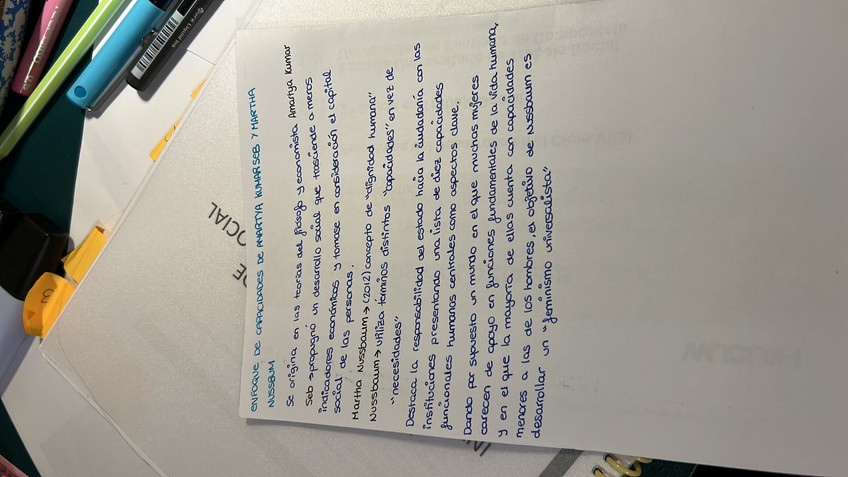 ENFOQUE DE CAPACIDADES DE AMARTYA KUMAR SEB Y MARTHA
NUSSBUM
Se origina en las teorías del filósofo y economista Amartya Kumar
Seb → propugnó un desarrollo social que trasciende a meros
indicadores económicos y tomase en consideración el capital
social de las personas.
Martha Nussbaum → (2012) concepto de "dignidad humana"
Nussbaum → utiliza términos distintos "capacidades" en vez de
"necesidades"
Destaca la responsabilidad del estado hacia la ciudadanía con las
instituciones presentando una lista de diez capacidades
funcionales humanas centrales como aspectos clave.
Dando por supuesto un mundo en el que muchas mujeres
carecen de apoyo en funciones fundamentales de la vida humana,
y en el que la mayoría de ellas cuenta con capacidades
menores a las de los hombres, el objetivo de Nussbaum es
desarrollar un "feminismo universalista"
DE
OCIAL
3